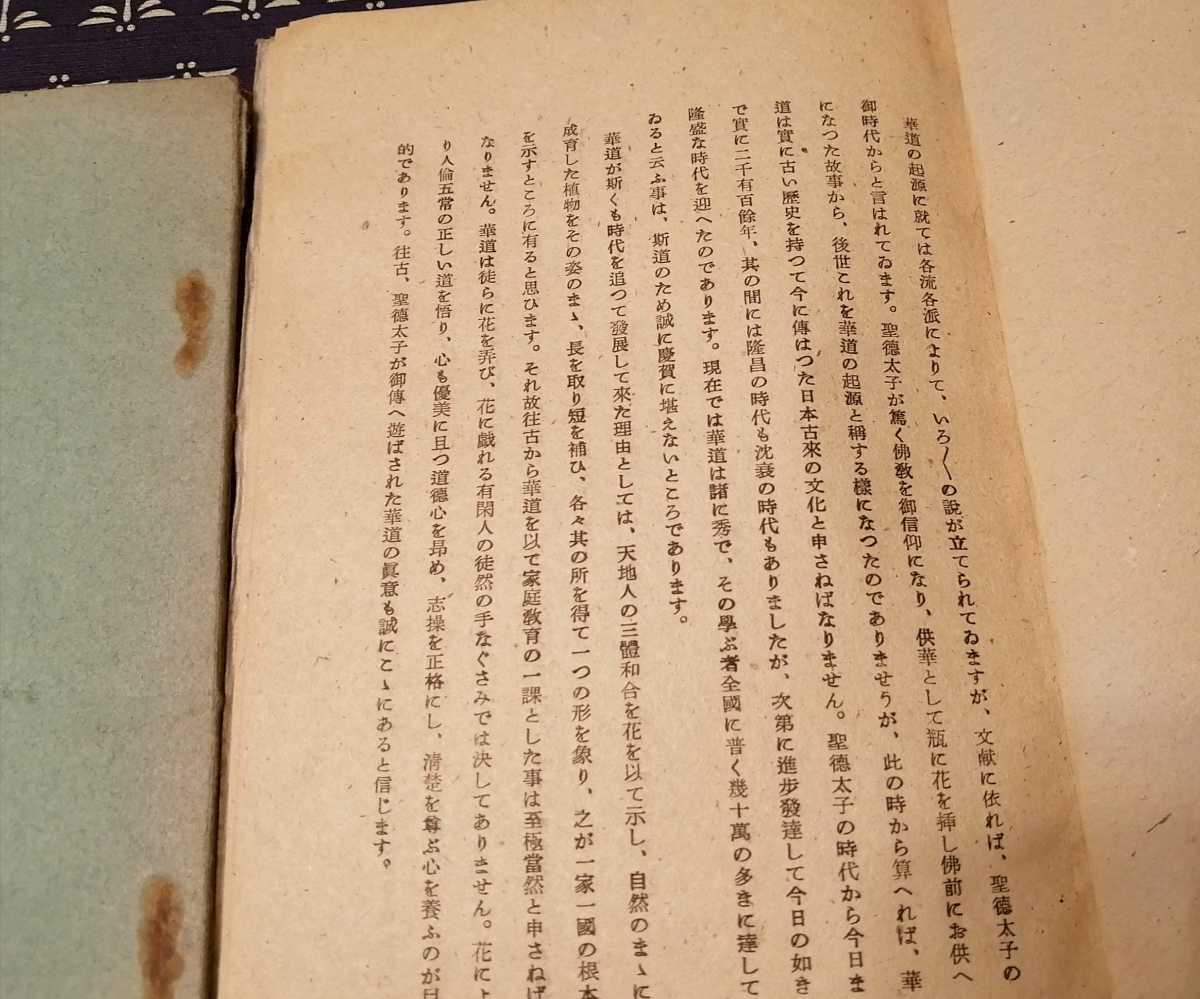 華道の起源に就ては各流各派によりて、いろ〳〵の説が立てられてゐますが、文献に依れば、聖德太子の
御時代からと言はれてゐます。聖德太子が篤く佛敎を御信仰になり、供華として瓶に花を挿し佛前にお供へ
になつた故事から、後世これを華道の起源と稱する樣になつたのでありませうが、此の時から算へれば、華
道は實に古い歷史を持つて今に傳はつた日本古來の文化と申さねばなりません。聖德太子の時代から今日ま
で實に二千有百餘年、其の間には隆昌の時代も沈衰の時代もありましたが、次第に進步發達して今日の如き
隆盛な時代を迎へたのであります。現在では華道は諸に秀で、その學ぶ者全國に普く幾十萬の多きに達して
ゐると云ふ事は、斯道のため誠に慶賀に堪えないところであります。
華道が斯くも時代を追つて發展して來た理由としては、天地人の三體和合を花を以て示し、自然のまゝに
成育した植物をその姿のまゝ、長を取り短を補ひ、各々其の所を得て一つの形を象り、之が一家一國の根本
を示すところに有ると思ひます。それ故往古から華道を以て家庭敎育の一課とした事は至極當然と申さねば
なりません。華道は徒らに花を弄び、花に戯れる有閑人の徒然の手なぐさみでは決してありません。花によ
り人倫五常の正しい道を悟り、心も優美に且つ道德心を昂め、志操を正格にし、淸楚を尊ぶ心を養ふのが目
的であります。往古、聖德太子が御傳へ遊ばされた華道の眞意も誠にこゝにあると信じます。